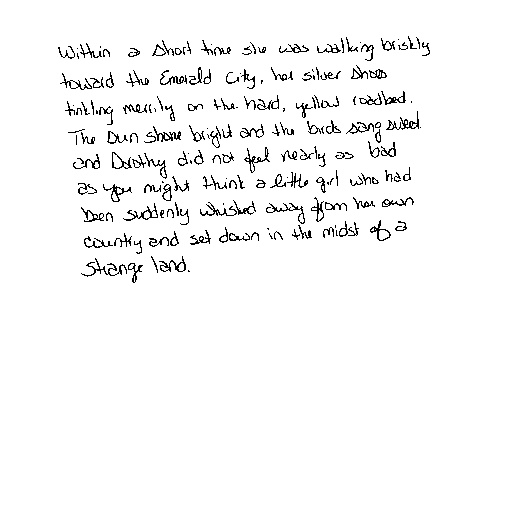 Within a short time she was walking briskly
toward the Emerald City, her silver shoes
tinkling merrily on the hard, yellow roadbed.
The sun shone bright and the birds sang sweet
and Dorothy did not feel nearly as bad
as you might think a little girl who had
been suddenly whisked away from her own
country and set down in the midst of a
strange land.